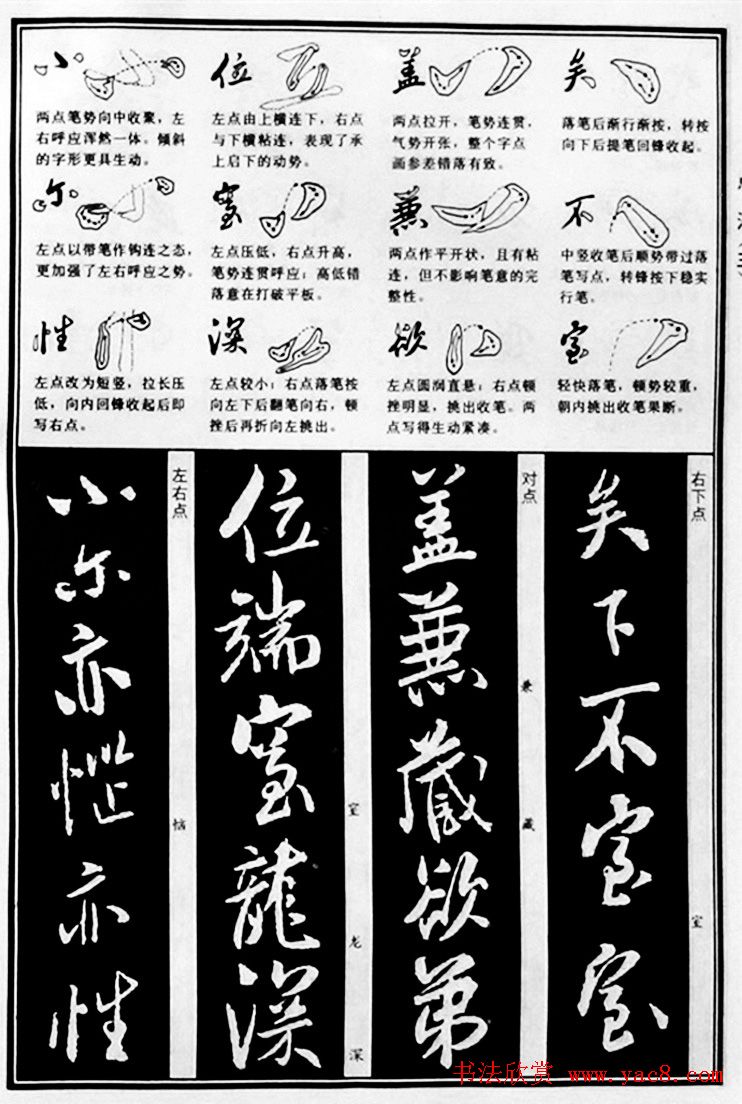 小
两点笔势向中收聚，左
右呼应浑然一体。倾斜
的字形更具生动。
位
左点由上横连下，右点
与下横粘连，表现了承
上启下的动势。
盖
两点拉开，笔势连贯，
气势开张，整个字点
画参差错落有致。
矣
落笔后渐行渐按，转按
向下后提笔回锋收起。
尔
左点以带笔作钩连之态，
更加强了左右呼应之势。
室
左点压低，右点升高，
笔势连贯呼应；高低错
落意在打破平板。
兼
两点作平开状，且有粘
连，但不影响笔意的完
整性。
不
中竖收笔后顺势带过落
笔写点，转锋按下稳实
行笔。
性
左点改为短竖，拉长压
低，向内回锋收起后即
写右点。
深
左点较小；右点落笔按
向左下后翻笔向右，顿
挫后再折向左挑出。
欲
左点圆润直悬；右点顿
挫明显，挑出收笔。两
点写得生动紧凑。
室
轻快落笔，顿势较重，
朝内挑出收笔果断。
右下点
室
矣下不室室
对点
兼
藏
盖兼藏欲弟
室
龙
深
位端室龍深
左右点
小尔亦
亦性
书法欣赏 www.yac8.com